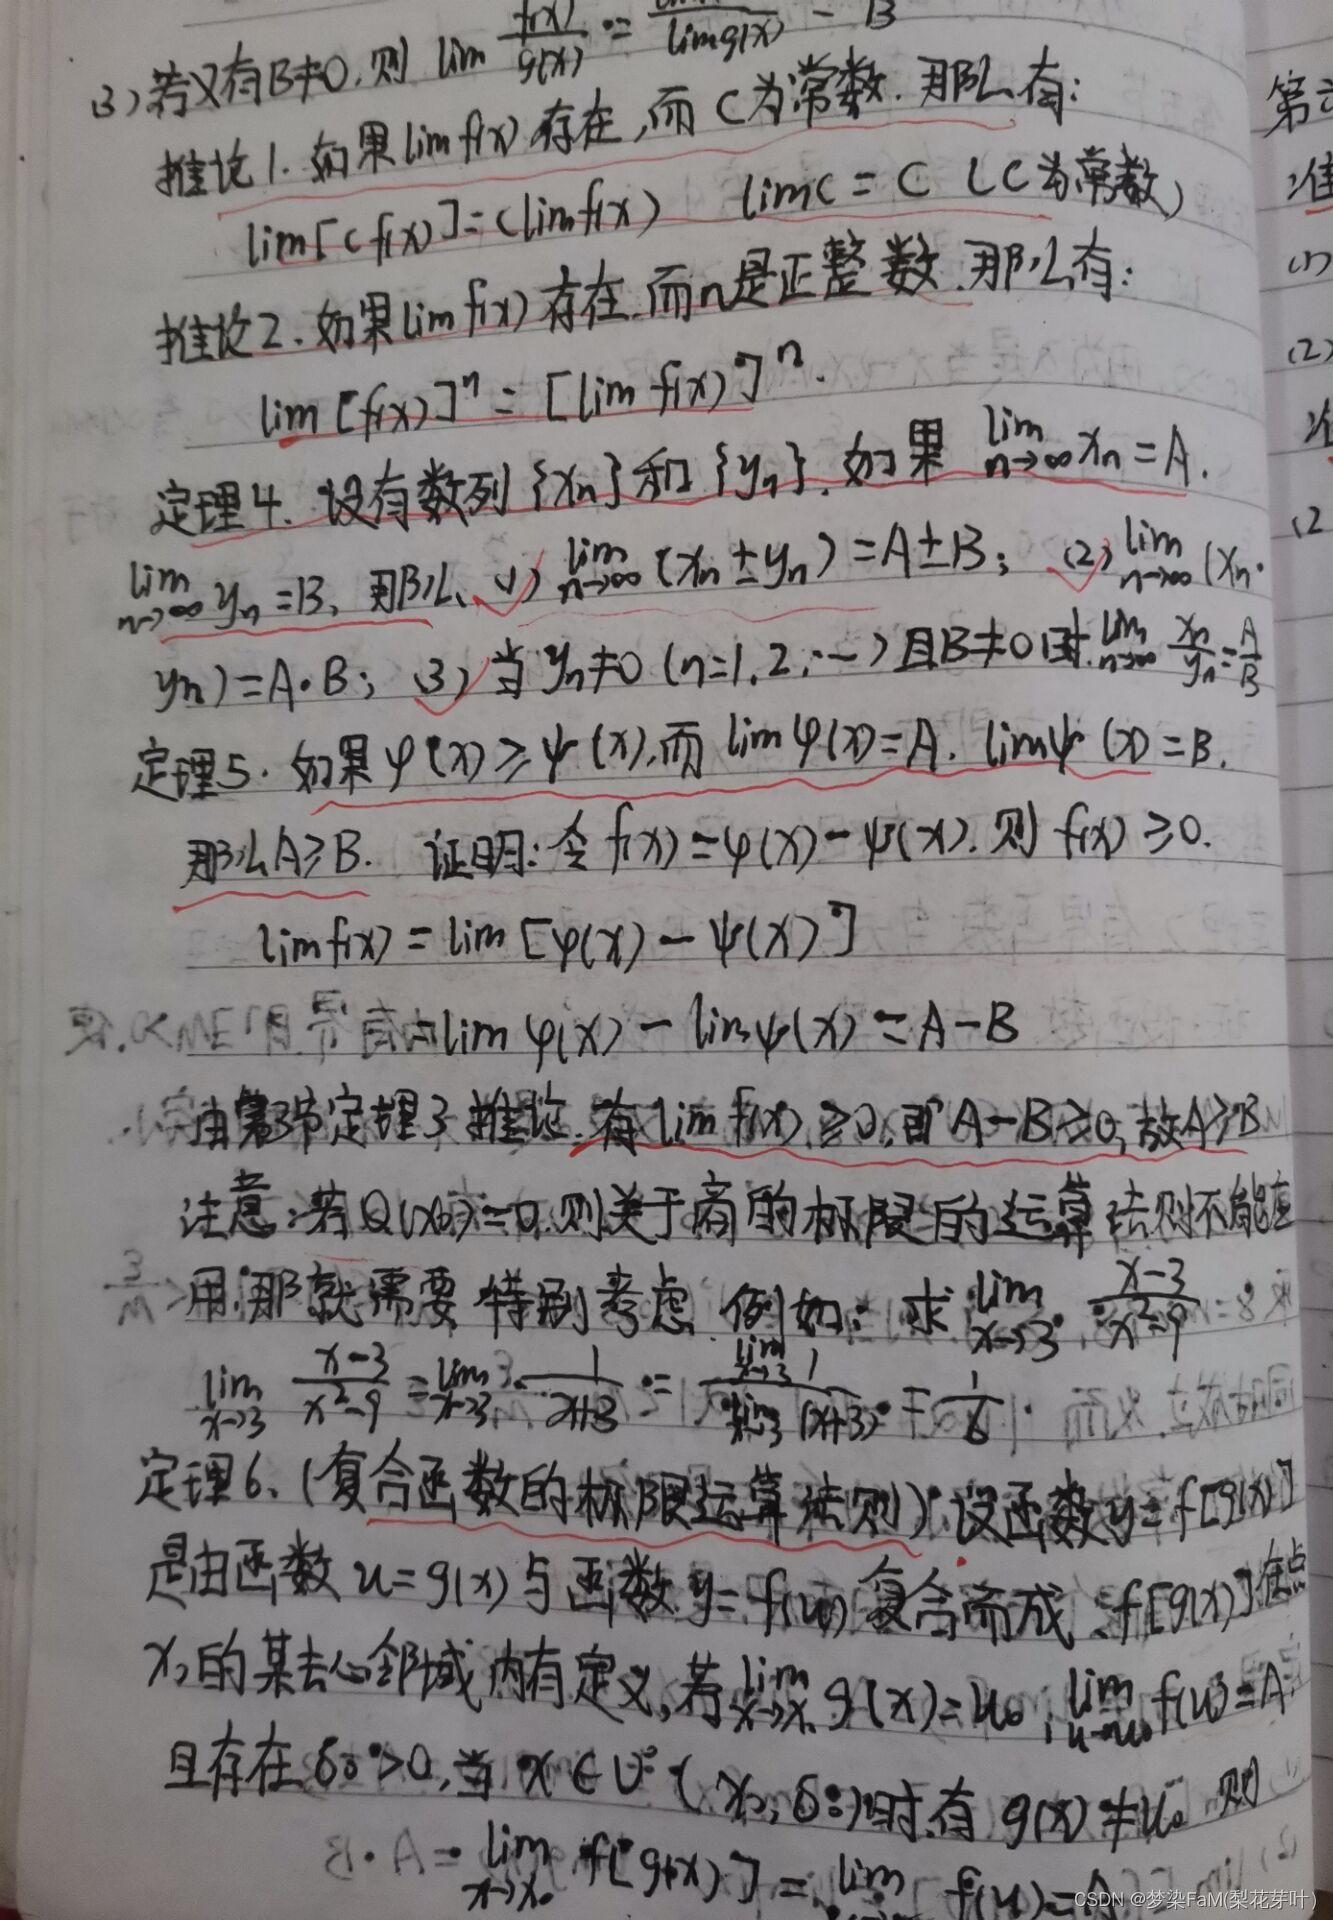 (3) 若又有B≠0, 则 lim f(x)/g(x) = lim f(x)/lim g(x) = B
推论1. 如果lim f(x) 存在, 而 C为常数. 那么有:
lim[Cf(x)]=Clim f(x) lim C = C (C为常数)
推论2. 如果lim f(x) 存在, 而n是正整数, 那么有:
lim [f(x)]ⁿ = [lim f(x)]ⁿ.
定理4. 设有数列{xn}和{yn}, 如果 lim n→∞ xn = A.
lim n→∞ yn =B, 那么, (1) lim n→∞ (xn ± yn) = A±B; (2) lim n→∞ (xn·
yn) = A·B; (3) 当 yn≠0 (n=1,2,…) 且B≠0时, lim n→∞ xn/yn = A/B
定理5. 如果 φ(x) ≥ ψ(x), 而 lim φ(x) = A. lim ψ(x) = B.
那么A≥B. 证明: 令 f(x) = φ(x) - ψ(x). 则 f(x) ≥0.
lim f(x) = lim [φ(x) - ψ(x)]
= lim φ(x) - lim ψ(x) = A-B
由第3节定理3推论, 有 lim f(x) ≥0, 即 A-B≥0, 故A≥B
注意: 若Q(x0)=0, 则关于商的极限的运算法则不能应
用, 那就需要特别考虑. 例如: 求 lim x→3 (x-3)/(x²-9)
lim x→3 (x-3)/(x²-9) = lim x→3 1/(x+3) = lim x→3 1/lim x→3 (x+3) = 1/6.
定理6. (复合函数的极限运算法则) 设函数y=f[g(x)]
是由函数 u=g(x) 与函数 y=f(u) 复合而成, f[g(x)]在点
x0的某去心邻域内有定义, 若 lim x→x0 g(x) = u0, lim u→u0 f(u) = A,
且存在 δ0>0, 当 x∈U° (x0, δ0) 时, 有 g(x) ≠ u0 则
lim x→x0 f[g(x)] = lim f(u) = A
第
准
(1)
(2)
准
(2
CSDN @梦染FaM(梨花芽叶)